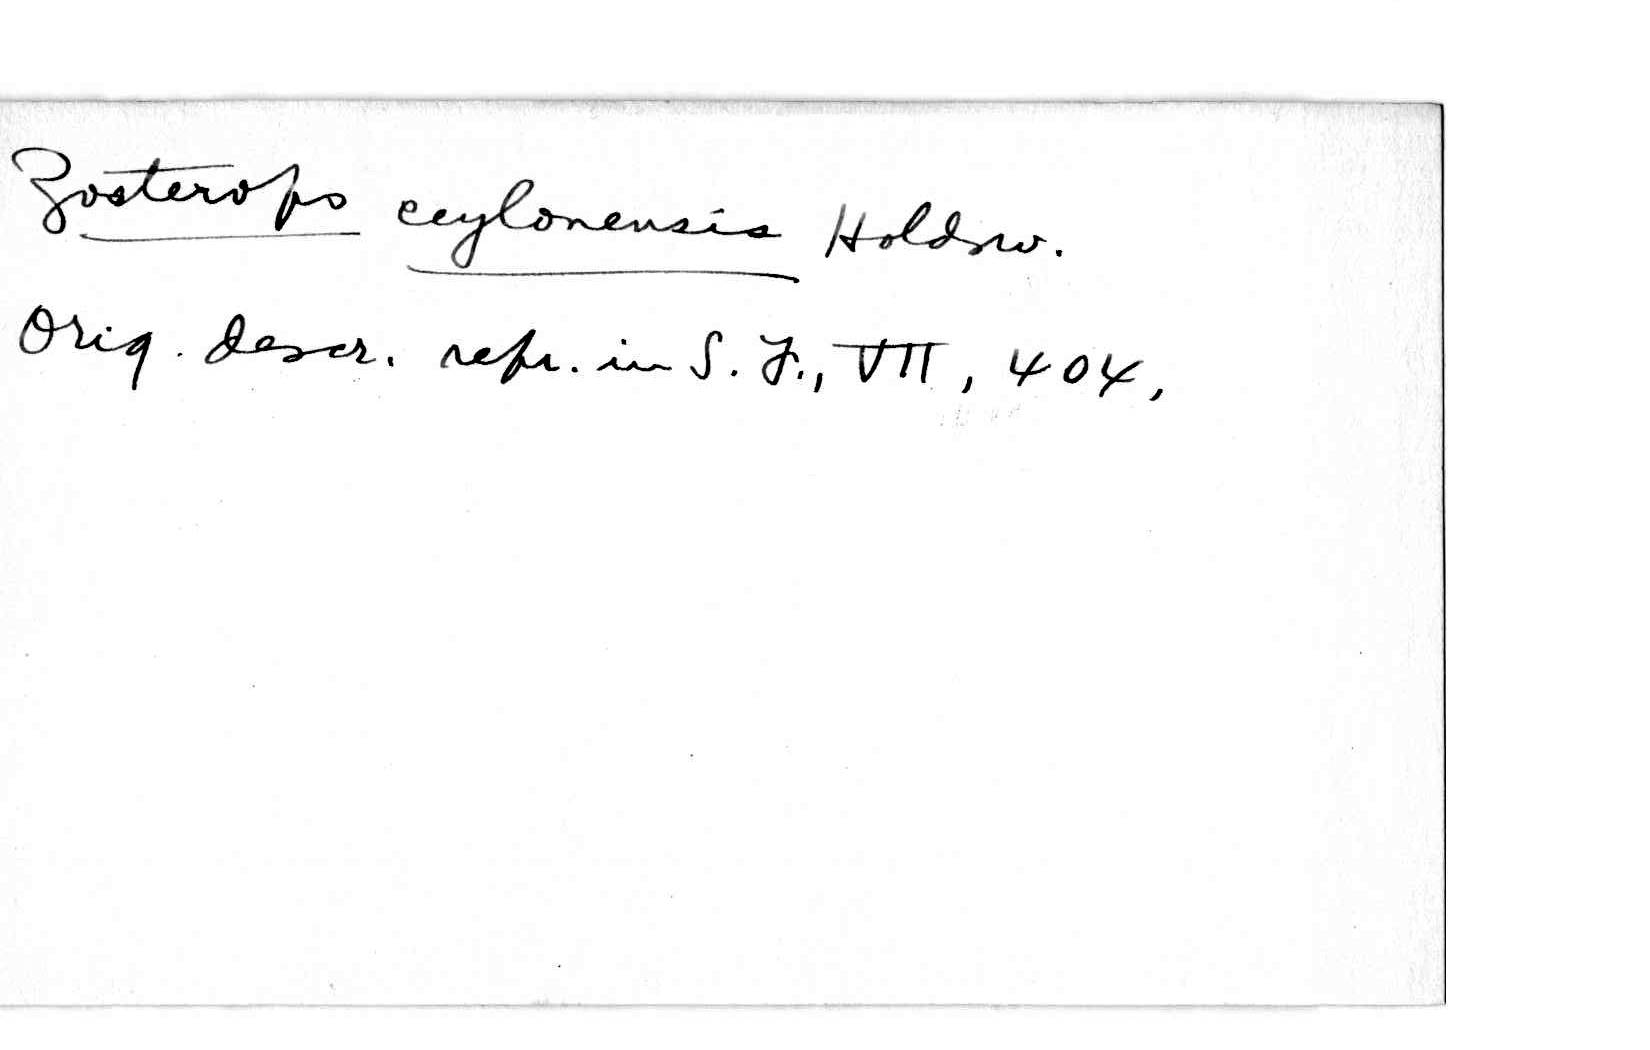 Zosterops ceylonensis Holdsw.
Orig. descr. repr. in S. F., VII, 404,